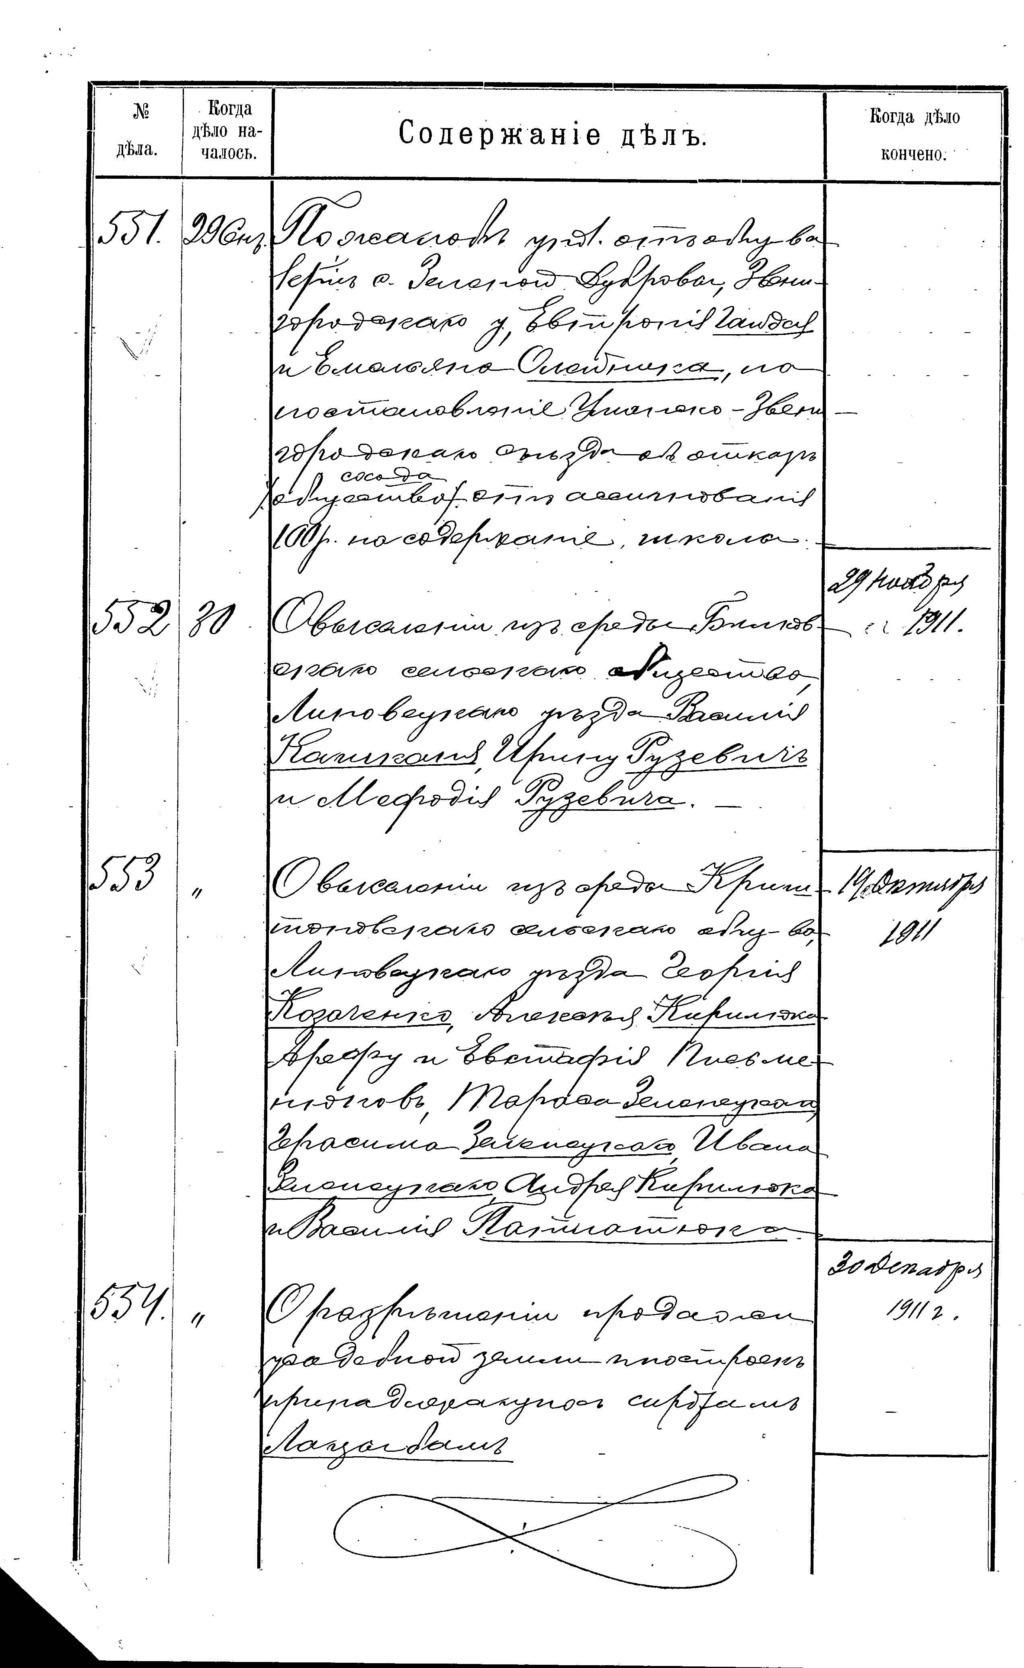 № дѣла.
Когда дѣло началось.
Содержаніе дѣлъ.
Когда дѣло кончено.
551. 29 Сен.
По жалобѣ
с. Зеленой Дубровы, Звени-
городскаго у,
и Емельяна Олейника, на
постановленіе Уманско-Звени
городскаго съѣзда объ отказѣ
схода
/общества/ отъ ассигнованія
100 р. на содержаніе школы.
552 30
О выселеніи изъ среды
скаго сельскаго общества,
Липовецкаго уѣзда Василія
Ирину Рузевичъ
и Мефодія Рузевича.
29 Ноября
1911.
553 "
О выселеніи изъ среды Криш
топовскаго сельскаго общ-ва,
Липовецкаго уѣзда Георгія
Козаченко, Алексѣя Кирилюка
Арефу и Евстафія Письме
нюковъ, Тараса Зеленецкаго,
Герасима Зеленецкаго, Ивана
Зеленецкаго, Андрея Кирилюка
и Василія
19 Октября
1911
554. "
О разрѣшеніи продажи
усадебной земли и построекъ
принадлежащихъ сиротамъ
30 Декабря
1911 г.